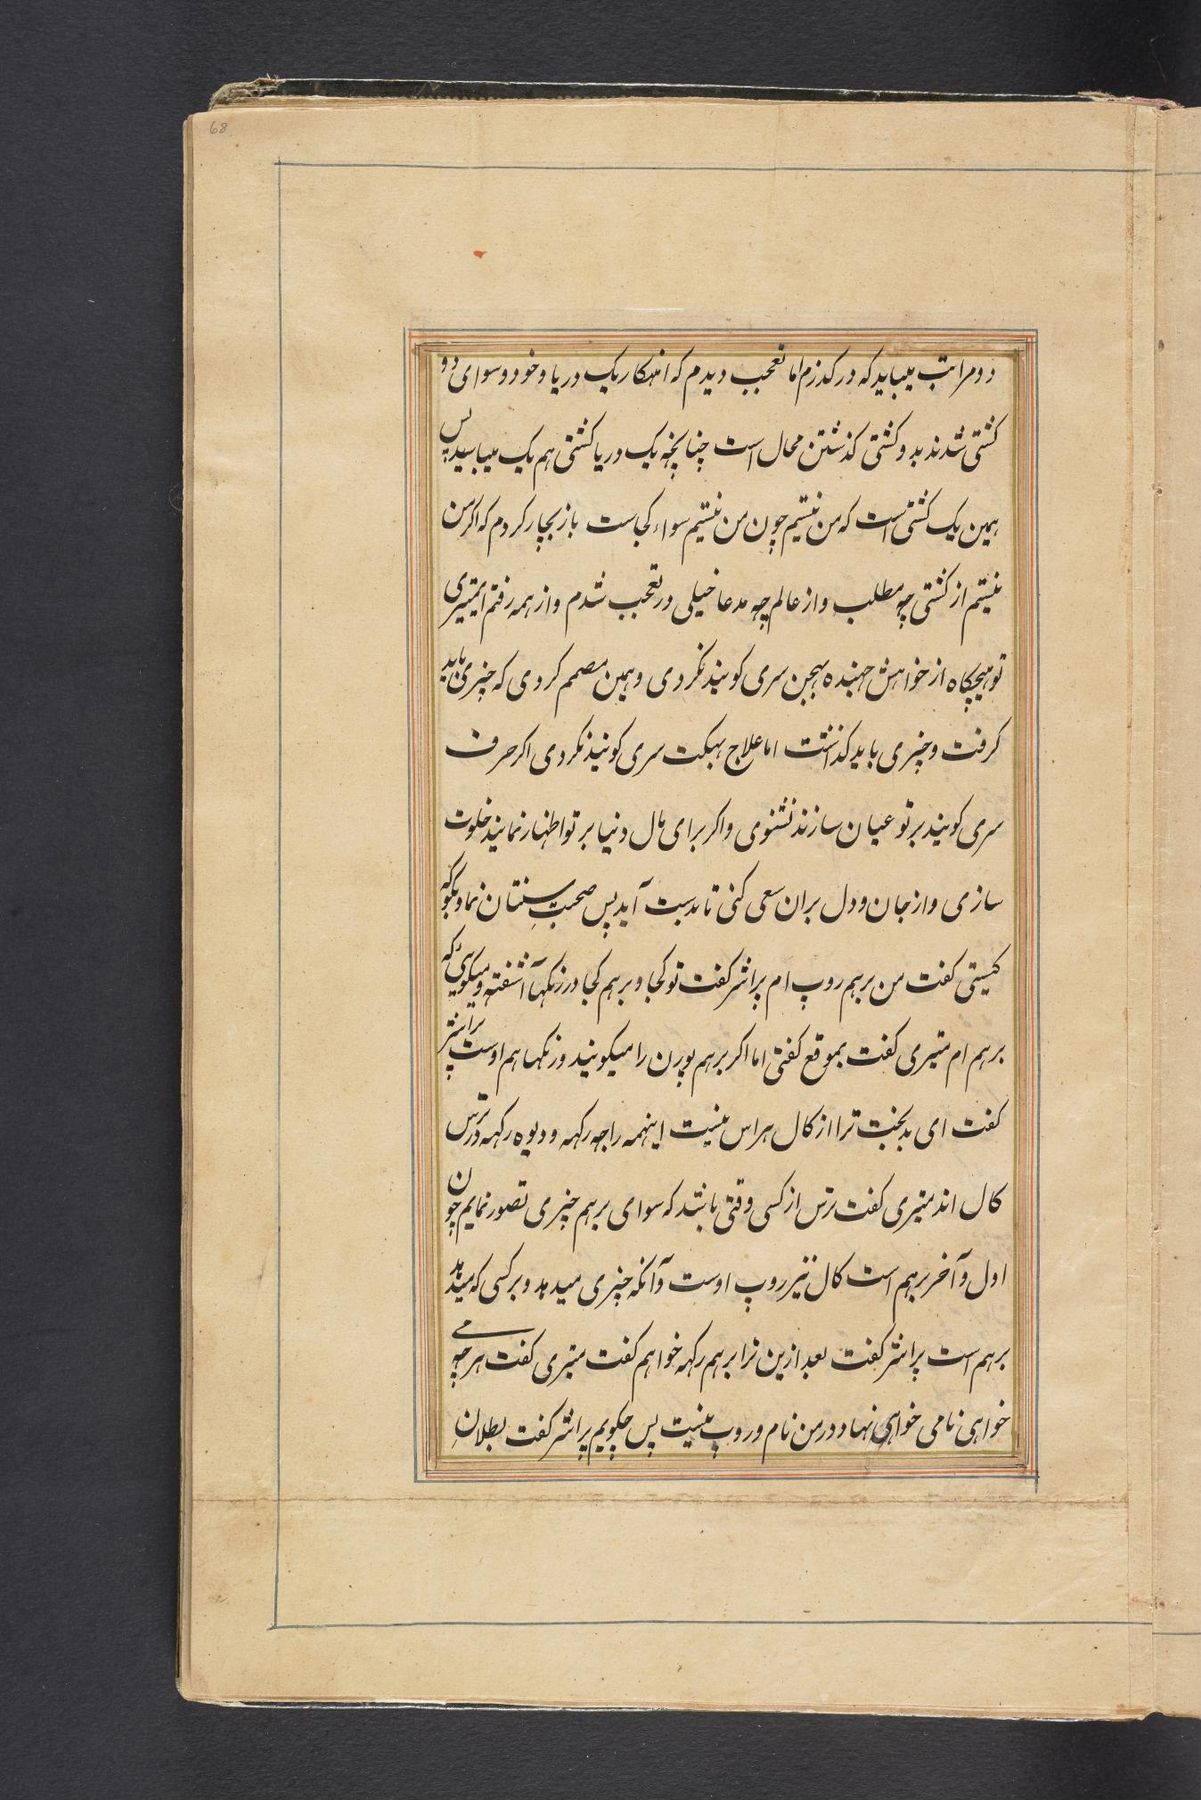 68
دو مراتب میباید که در کدزم اما تعجب دیدم که انهکار یک دریا و خود و سوای دو
کشتی شدند بدو کشتی کذشتن محال است چنانچه یک دریا کشتی هم یک میباید پس
همین یک کشتی است که من نیستم چون من نیستم سواء کجاست باز بچار کردم که اکر من
نیستم از کشتی چه مطلب و از عالم چه مدعا خیلی در تعجب شدم و از همه رفتم ای میتری
تو هیچکاه از خواهش جهنده بهجن سری کوبند نکردی و همین مصمم کردی که چیزی باید
کرفت و چیزی باید کذاشت اما علاج بهکت سری کوبند نکردی اکر حرف
سری کوبند بر تو عیان سازند نشنوی و اکر برای مال دنیا بر تو اظهار نمایند خلوت
سازی و از جان و دل بران سعی کنی تا بدست آید پس صحبت سنتان نما و بکو که
کیستی کفت من برهم روپ ام پراشر کفت تو کجا و برهم کجا در زنکها آشفته و میکوئی که
برهم ام میتری کفت بموقع کفتی اما اکر برهم پورن را میکویند و زنکها هم اوست پراشر
کفت ای بدبخت ترا از کال هراس نیست اینهمه راجه رکهه و دیوه رکهه در ترس
کال اند میتری کفت ترس از کسی وقتی باشد که سوای برهم چیزی تصور نمایم چون
اول و آخر برهم است کال نیز روپ اوست و آنکه چیزی میدهد و بر کسی که میدهد
برهم است پراشر کفت بعد ازین ترا برهم رکهه خواهم کفت میتری کفت هر چه می
خواهی نامی خواهی نهاد در من نام و روپ نیست پس چکویم پراشر کفت بطلان